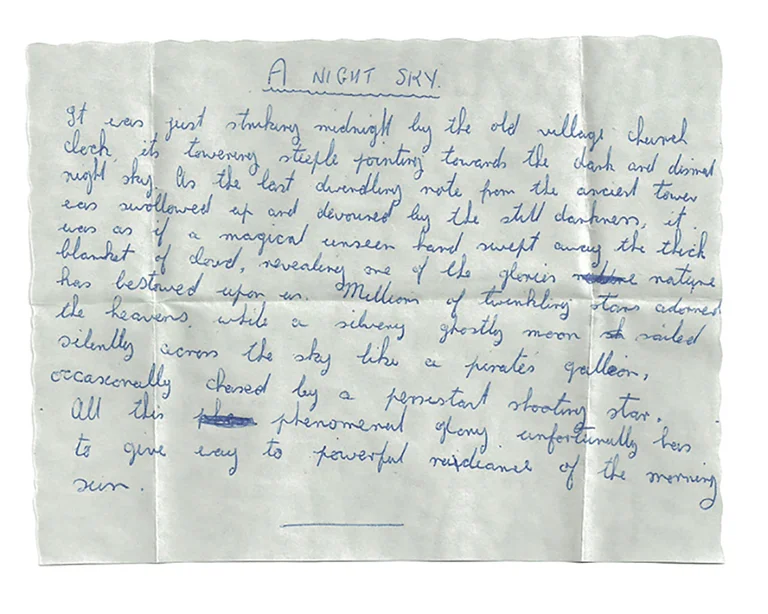 A NIGHT SKY.
It was just striking midnight by the old village church
clock, its towering steeple pointing towards the dark and dismal
night sky. As the last dwindling note from the ancient tower
was swollowed up and devoured by the still darkness, it
was as if a magical unseen hand swept away the thick
blanket of cloud, revealing one of the glories nature
has bestowed upon us. Millions of twinkling stars adorned
the heavens, while a silvery ghostly moon sailed
silently across the sky like a pirates galleon,
occasionally chased by a persistant shooting star.
All this phenomenal glory unfortunally has
to give way to powerful raideance of the morning
sun.